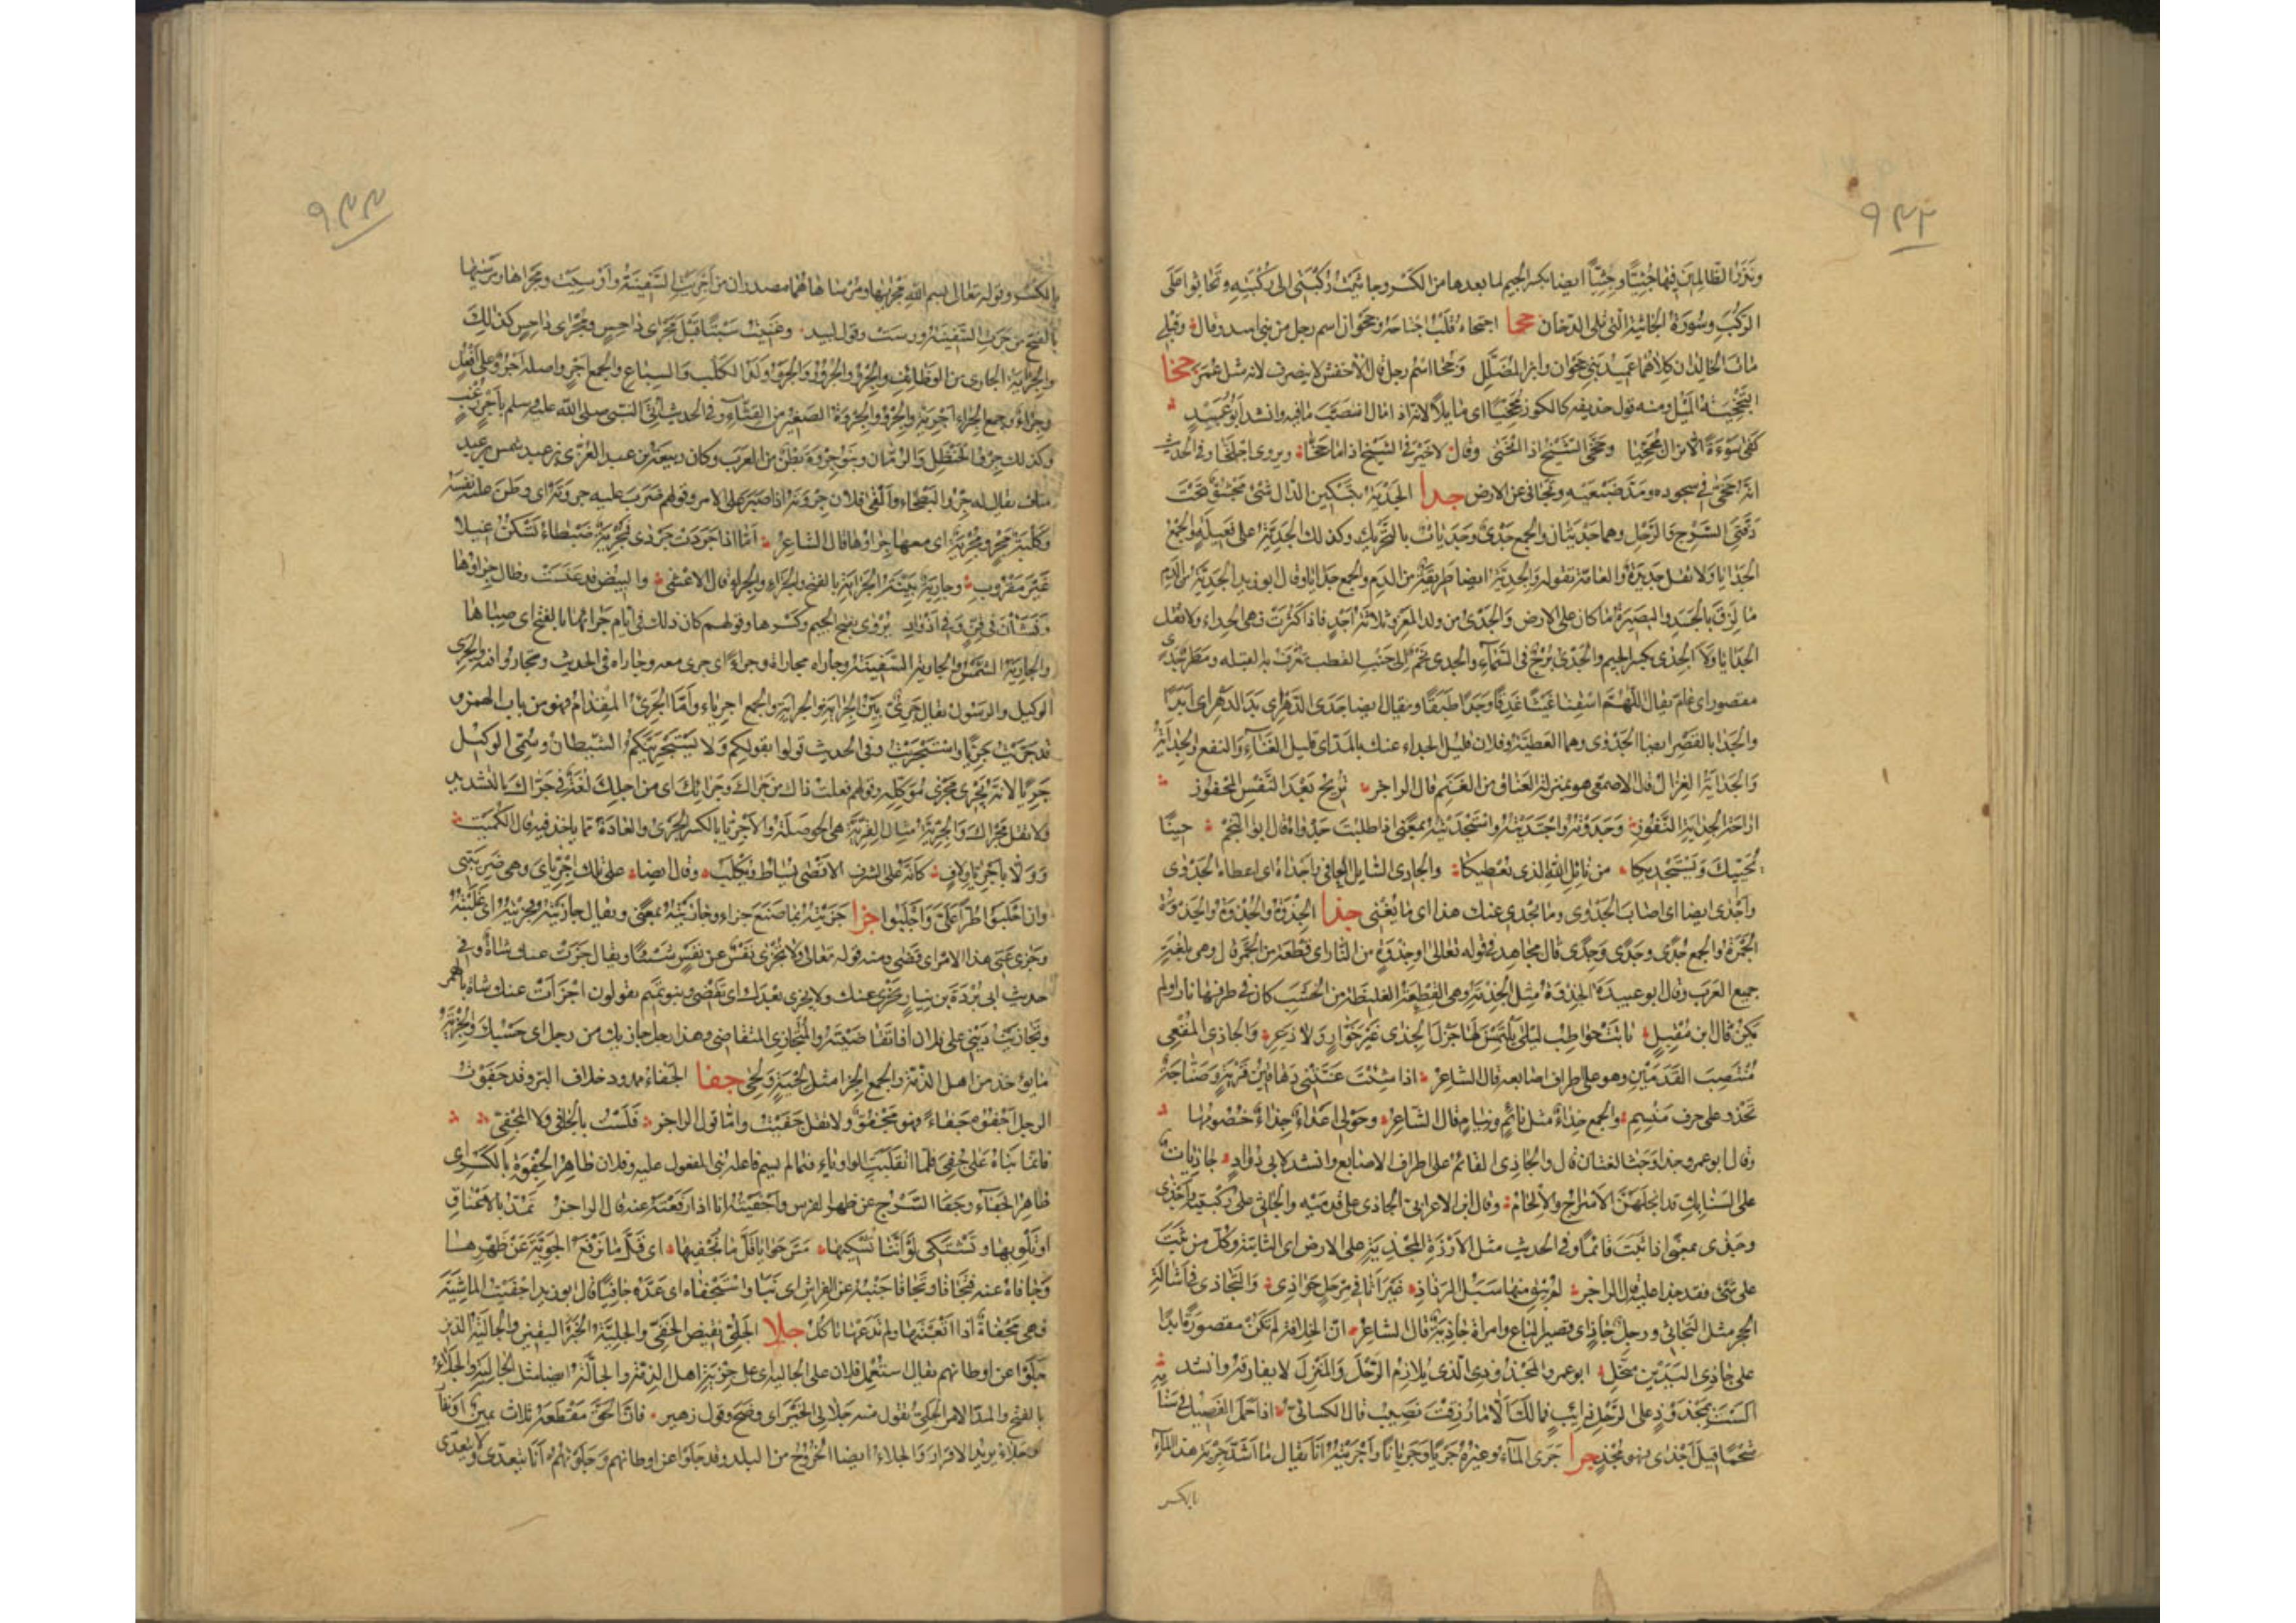 ٩٤٣
ونذر الظالمين فيها جثيا وجثيا ايضا بكسر الجيم لما بعدها من الكسر وجاثيت ركبتى الى ركبته وتجاثوا على
الركب وسورة الجاثية التى تلى الدخان جحا اجتحاه قلب اجتاحه وجحوان اسم رجل من بنى اسد وقال وقبلى
مات الخالدان كلاهما عميد بنى جحوان وابن المضلل وجحا اسم رجل قال الاخفش لا ينصرف لانه مثل عمر جخا
التجخية الميل ومنه قول حذيفة كالكوز مجخيا اى مايلا لانه اذا مال انصب ما فيه وانشد ابو عبيد
كفى سوءة الا تزال مجخيا وجخى الشيخ اذا انحنى وقال لا خير فى الشيخ اذا ما جخا ويروى اجلخا وفى الحديث
انه جخى فى سجوده ومد ضبعيه وتجافى عن الارض جدا الجدية بتسكين الدال شئ محشو تحت
دفتى السرج والرحل وهما جديتان والجمع جدى وجديات بالتحريك وكذلك الجدية على فعيلة والجمع
الجدايا ولا تقل جديدة والعامة تقوله والجدية ايضا طريقة من الدم والجمع جدايا وقال ابو زيد الجدية من الدم
ما لزق بالجسد والبصيرة ما كان على الارض والجدى من ولد المعز وثلاثة اجد فاذا كثرت فهى الجداء ولا تقل
الجدايا ولا الجدى بكسر الجيم والجدى برج فى السماء والجدى نجم الى جنب القطب تعرف به القبلة ومطر جدى
مقصور اى عام يقال اللهم اسقنا غيثا غدقا وجدا طبقا ويقال ايضا جدى الدهر اى يد الدهر اى ابدا
والجدا بالقصر ايضا الجدوى وهما العطية وفلان قليل الجداء عنك بالمد اى قليل الغناء والنفع والجداية
والجداية الغزال قال الاصمعى هو بمنزلة العناق من الغنم قال الراجز تريح بعد النفس المحفوز
اراحة الجداية النفوز وجدوته واجتديته واستجديته بمعنى اذا طلبت جدواه قال ابو النجم جينا
نحييك ونستجديكا من نائل الله الذى يعطيكا والجادى السائل العافى واجداه اى اعطاه الجدوى
واجدى ايضا اى اصاب الجدوى وما يجدى عنك هذا اى ما يغنى جذا الجذوة والجذوة والجذوة
الجمرة والجمع جذى وجذى وجذى قال مجاهد فى قوله تعالى او جذوة من النار اى قطعة من الجمر قال وهى بلغة
جميع العرب وقال ابو عبيدة الجذوة مثل الجذمة وهى القطعة الغليظة من الخشب كان فى طرفها نار او لم
يكن قال ابن مقبل باتت حواطب ليلى يلتمسن لها جزل الجذى غير خوار ولا دعر والجاذى المقعى
منتصب القدمين وهو على اطراف اصابعه قال الشاعر اذا شئت غنتنى دهاقين قرية وصناجة
تجذو على حرف منسم والجمع جذاء مثل نائم ونيام قال الشاعر وحولى اعداء جذاء خصومها
وقال ابو عمرو جذا وجثا لغتان قال والجاذى القائم على اطراف الاصابع وانشد لابى دؤاد جاذيات
على السنابك قد انحلهن الاسراج والالجام وقال ابن الاعرابى الجاذى على قدميه والجاثى على ركبتيه واجذى
وجذى بمعنى اذا ثبت قائما وفى الحديث مثل الارزة المجذية على الارض اى الثابتة وكل من ثبت
على شئ فقد جذا عليه قال الراجز لم يبق منها سبل الرذاذ غير اثافى مرجل جواذى والتجاذى فى اشالة
الحجر مثل التجاثى ورجل جاذ اى قصير الباع وامراة جاذية قال الشاعر ان الخلافة لم تكن مقصورة ابدا
على جاذى اليدين مبخل ابو عمرو المجذوذى الذى يلازم الرحل والمنزل لا يفارقه وانشد
الست بمجذوذ على الرحل دائب فما لك الا ما رزقت نصيب قال الكسائى اذا حمل الفصيل فى سنامه
شحما قيل اجذى فهو مجذ جرا جرى الماء وغيره جريا وجريانا واجريته انا يقال ما اشد جرية هذا الماء
بالكسر
٩٤٤
بالكسر وقوله تعالى بسم الله مجريها ومرساها هما مصدران من اجريت السفينة وارسيت ومجراها ومرسيها
بالفتح من جرت السفينة ورست وقول لبيد وغنيت سبتا قبل مجرى داحس ومجرى داحس كذلك
والجراية الجارى من الوظائف والجرو والجرو والجرو ولد الكلب والسباع والجمع اجر واصله اجرو على افعل
وجراء وجمع الجراء اجرية والجرو والجروة الصغير من القثاء وفى الحديث اتى النبى صلى الله عليه وسلم باجر زغب
وكذلك جرو الحنظل والرمان وبنو جروة بطن من العرب وكان ربيعة بن عبد العزى بن عبد شمس بن عبد
مناف يقال له جرو البطحاء والقى فلان جروته اذا صبر على الامر وقولهم ضرب عليه جروته اى وطن عليه نفسه
وكلبة مجر ومجرية اى معها جراوها قال الشاعر اما اذا حردت حردى فمجرية ضبطاء تسكن غيلا
غير مقروب وجارية بينة الجراية بالفتح والجراء والجراء قال الاعشى والبيض قد عنست وطال جراوها
ونشأن فى قن وفى اذواد يروى بفتح الجيم وكسرها وقولهم كان ذلك فى ايام جرائها بالفتح اى صباها
والجارية الشمس والجارية السفينة وجاراه مجاراة وجراء اى جرى معه وجاراه فى الحديث وتجاروا فيه والجرى
الوكيل والرسول يقال جرى بين الجراية والجراية والجمع اجرياء واما الجرئ المقدام فهو من باب الهمز
قد جريت جريا واستجريت وفى الحديث قولوا بقولكم ولا يستجرينكم الشيطان وسمى الوكيل
جريا لانه يجرى مجرى موكله وقولهم فعلت ذاك من جراك وجرائك اى من اجلك لغة فى جراك بالتشديد
ولا تقل مجراك والجرية مثال القرية هى الحوصلة والاجريا بالكسر الجرى والعادة مما ياخذ فيه قال الكميت
وولا باجريا ولاف كانه على الشرف الاقصى يساط ويكلب وقال ايضا على تلك اجرياى وهى ضريبتى
وان اجلبوا طرا على واجلبوا جزا جزيته بما صنع جزاء وجازيته بمعنى ويقال جازيته فجزيته اى غلبته
وجزى عنى هذا الامر اى قضى ومنه قوله تعالى ولا تجزى نفس عن نفس شيئا ويقال جزت عنك شاة وفى
حديث ابى بردة بن نيار تجزى عنك ولا تجزى بعدك اى تقضى وبنو تميم يقولون اجزات عنك شاة بالهمز
وتجازيت دينى على فلان اذا تقاضيته والمتجازى المتقاضى وهذا رجل جازيك من رجل اى حسبك والجزية
ما يؤخذ من اهل الذمة والجمع الجزا مثل لحية ولحى جفا الجفاء ممدود خلاف البر وقد جفوت
الرجل اجفوه جفاء فهو مجفو ولا تقل جفيت واما قول الراجز فلست بالجافى ولا المجفى
فانما بناه على جفى فلما انقلبت الواو ياء فيما لم يسم فاعله بنى المفعول عليه وفلان ظاهر الجفوة بالكسر اى
ظاهر الجفاء وجفا السرج عن ظهر الفرس واجفيته انا اذا رفعته عنه قال الراجز تمد بالاعناق
او تلويها وتشتكى لو اننا نشكيها مس حوايا قل ما نجفيها اى قل ما نرفع الحوية عن ظهرها
وجافاه عنه فتجافا وتجافا جنبه عن الفراش اى نبا واستجفاه اى عده جافيا قال ابو زيد اجفيت الماشية
فهى مجفاة اذا اتعبتها ولم تدعها تاكل جلا الجلى نقيض الخفى والجلية الخبر اليقين والجالية الذين
جلوا عن اوطانهم يقال استعمل فلان على الجالية اى على جزية اهل الذمة والجالة ايضا مثل الجالية والجلاء
بالفتح والمد الامر الجلى تقول منه جلا لى الخبر اى وضح وقول زهير فان الحق مقطعه ثلاث يمين او نفار
او جلاء يريد الاقرار والجلاء ايضا الخروج من البلد وقد جلوا عن اوطانهم وجلوتهم انا يتعدى ولا يتعدى